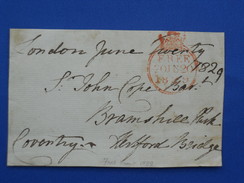 London June Twenty
1829
Sr. John Cope Bart.
Bramshill Park
Coventry Hertford Bridge
FREE